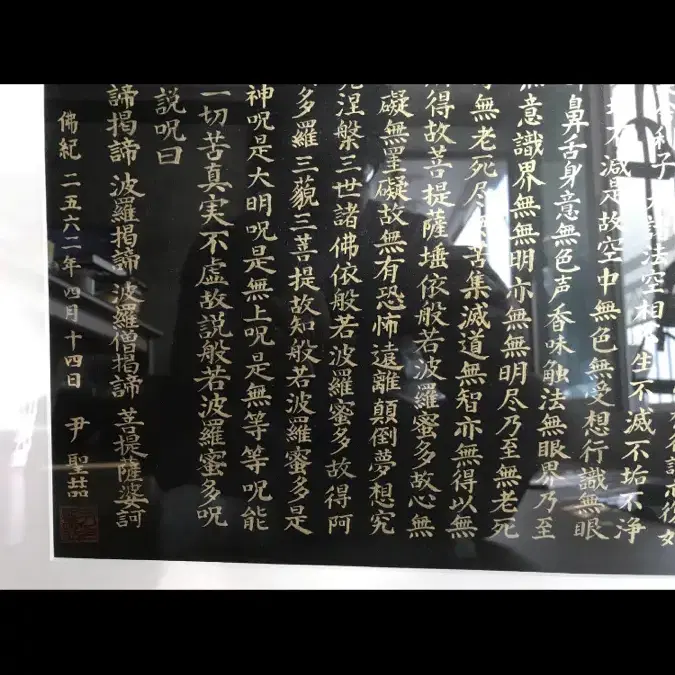 行識亦復如
舍利子是諸法空相不生不滅不垢不淨
不減是故空中無色無受想行識無眼
鼻舌身意無色声香味触法無眼界乃至
無意識界無無明亦無無明尽乃至無老死
無老死尽無苦集滅道無智亦無得以無
得故菩提薩埵依般若波羅蜜多故心無
礙無罣礙故無有恐怖遠離顛倒夢想究
涅槃三世諸佛依般若波羅蜜多故得阿
多羅三藐三菩提故知般若波羅蜜多是
神呪是大明呪是無上呪是無等等呪能
一切苦真実不虛故説般若波羅蜜多呪
説呪曰
諦揭諦 波羅揭諦 波羅僧揭諦 菩提薩婆訶
佛紀 二五六二年四月十四日 尹聖喆